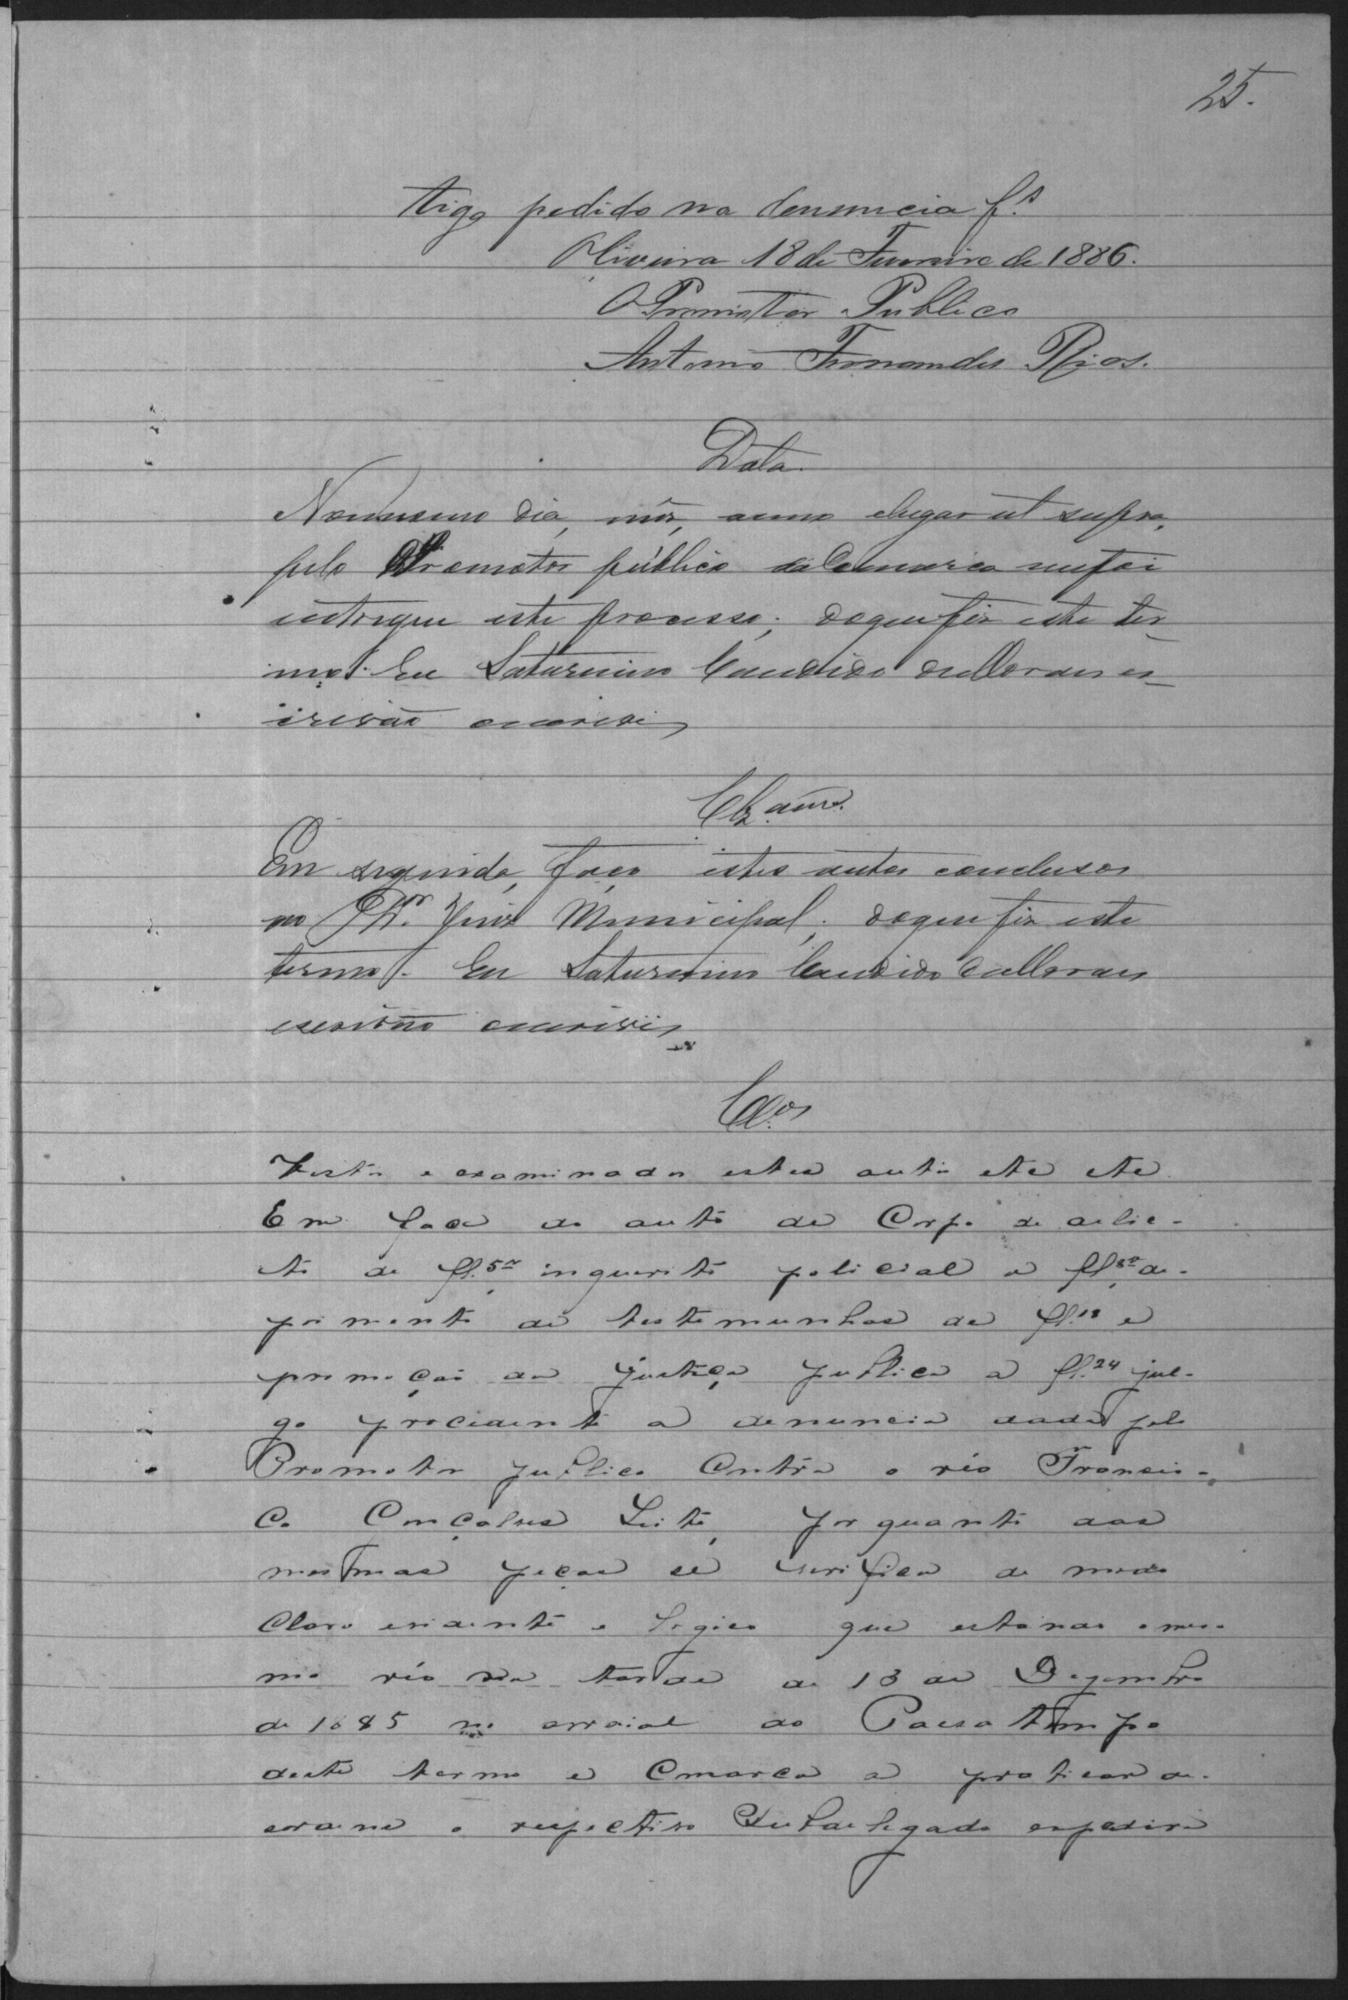 25.
tigo pedido na denuncia f.s
Oliveira 18 de Fevereiro de 1886.
O Promotor Publico
Antonio Fernandes Rios.
Data
No mesmo dia, mês, anno elugar ut supra,
pelo Promotor público da Comarca me foi
entregue este processo; do que fiz este ter-
mo. Eu Saturnino Candido de Moraes es-
crivão escrevi
Clz.am.
Em seguida, faço estes autos conclusos
ao Dr. Juiz Municipal; do que fiz este
termo. Eu Saturnino Candido de Moraes
escrivão escrevi
Cl.os
Visto e examinados estes autos etc etc
Em face do auto de Corpo de delic-
to de fl. 5 inquerito policial a fl. 8 de-
poimento de testemunhas de fl. 18 e
promoção da justiça publica a fl. 24 jul-
go procidente a denuncia dada pelo
Promotor publico Contra o réo Francis-
co Gonçalves Leite, por quanto das
mesmas peças se verifica de modo
Claro evidente e logico que estando o mes-
mo réo na tarde de 13 de Dezembro
de 1885 no arraial do Passatempo
deste termo e Comarca a praticar de-
sordens o respectivo Subdelegado expedira